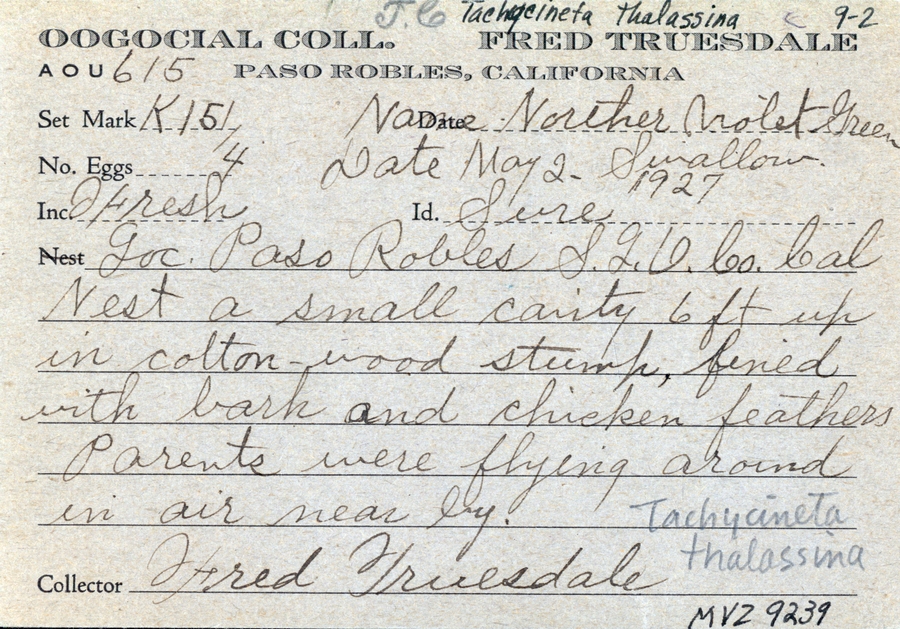 J.C Tachycineta thalassina c 9-2
OOGOCIAL COLL. FRED TRUESDALE
AOU 615 PASO ROBLES, CALIFORNIA
Set Mark K151/4 Name Date Norther Violet Green
No. Eggs 4 Date May 2 - Swallow.
1927
Inc Fresh Id. Sure
Nest Loc. Paso Robles S.L.O. Co. Cal
Nest a small cavity 6 ft up
in cotton-wood stump, lined
with bark and chicken feathers
Parents were flying around
in air near by.
Tachycineta
thalassina
Collector Fred Truesdale
MVZ 9239